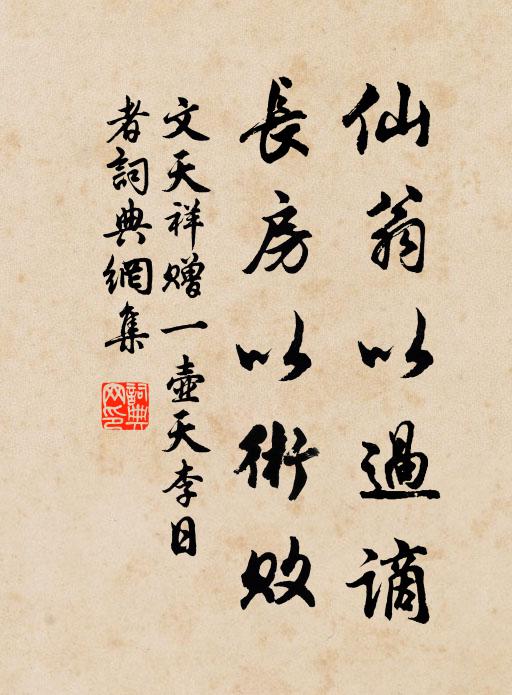 仙翁以過謫
長房以術敗
文天祥赠一壺天李日
者詞典網集
詞典網印